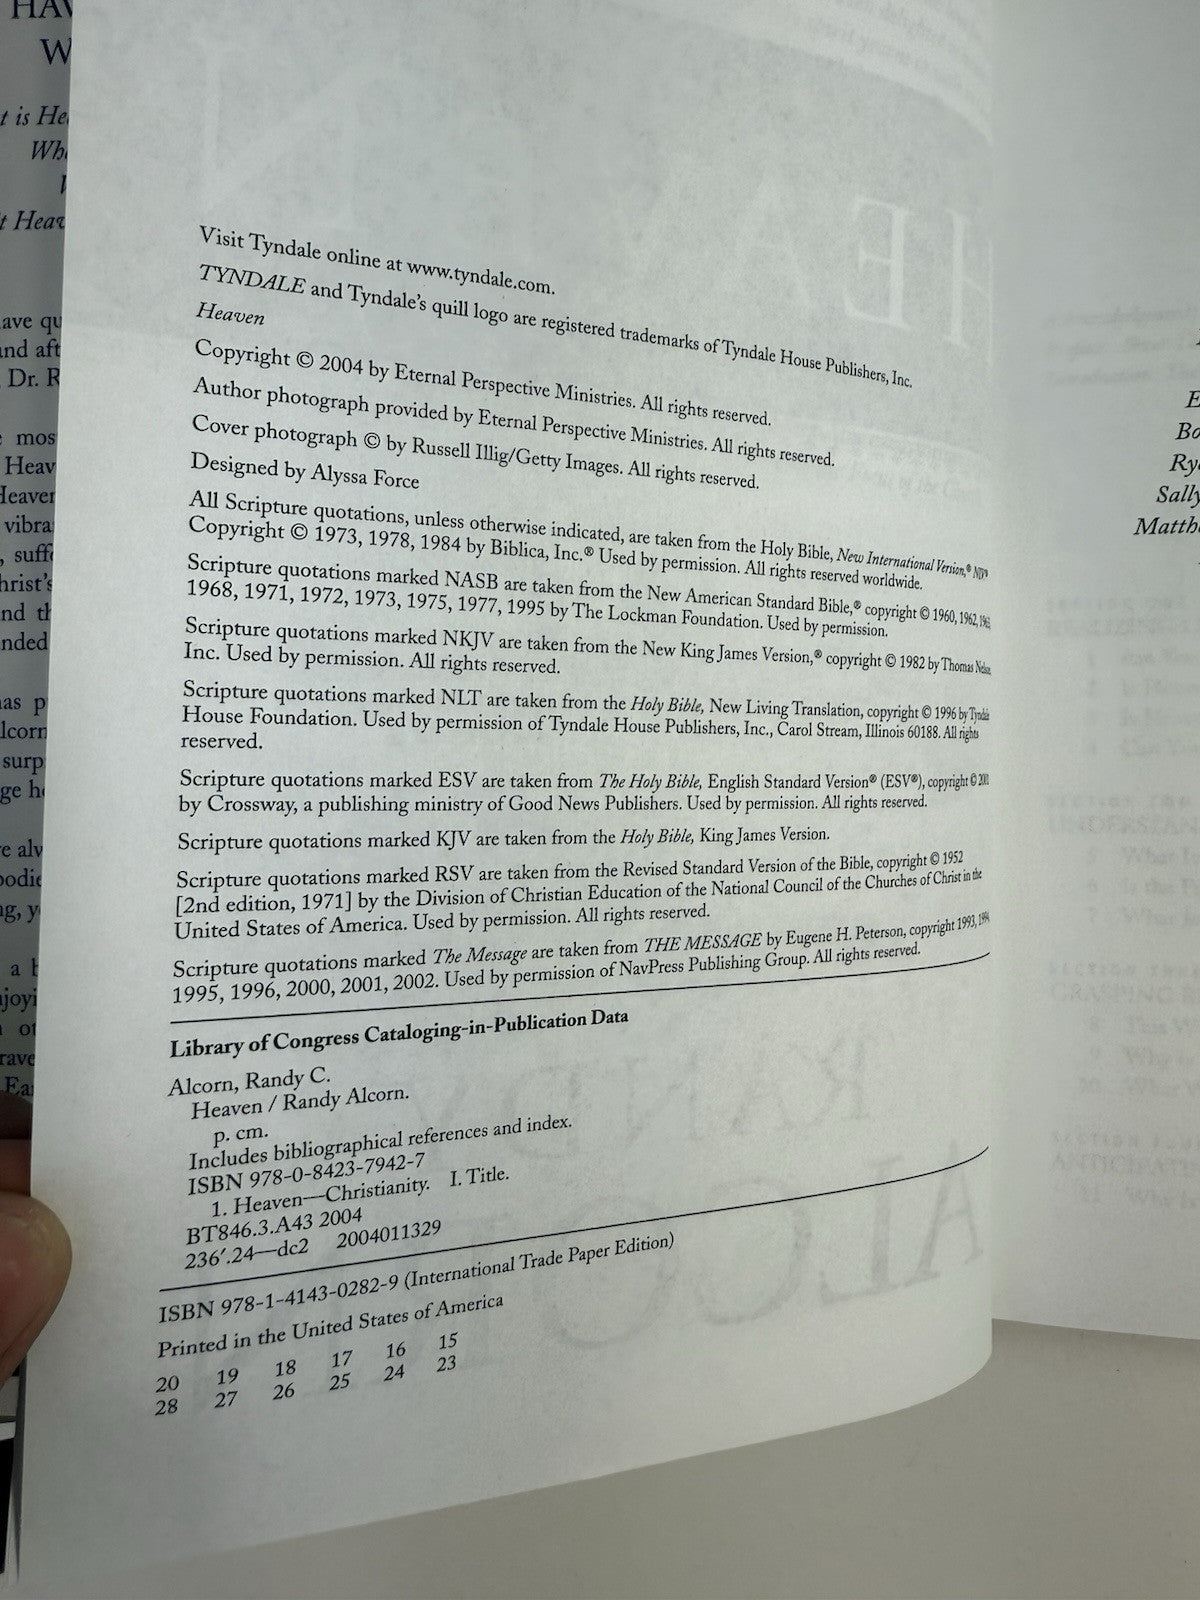 Visit Tyndale online at www.tyndale.com.
TYNDALE and Tyndale's quill logo are registered trademarks of Tyndale House Publishers, Inc.
Heaven
Copyright © 2004 by Eternal Perspective Ministries. All rights reserved.
Author photograph provided by Eternal Perspective Ministries. All rights reserved.
Cover photograph © by Russell Illig/Getty Images. All rights reserved.
Designed by Alyssa Force
All Scripture quotations, unless otherwise indicated, are taken from the Holy Bible, New International Version,® NIV®
Copyright © 1973, 1978, 1984 by Biblica, Inc.® Used by permission. All rights reserved worldwide.
Scripture quotations marked NASB are taken from the New American Standard Bible,® copyright © 1960, 1962, 1963,
1968, 1971, 1972, 1973, 1975, 1977, 1995 by The Lockman Foundation. Used by permission.
Scripture quotations marked NKJV are taken from the New King James Version,® copyright © 1982 by Thomas Nelson,
Inc. Used by permission. All rights reserved.
Scripture quotations marked NLT are taken from the Holy Bible, New Living Translation, copyright © 1996 by Tyndale
House Foundation. Used by permission of Tyndale House Publishers, Inc., Carol Stream, Illinois 60188. All rights
reserved.
Scripture quotations marked ESV are taken from The Holy Bible, English Standard Version® (ESV®), copyright © 2001
by Crossway, a publishing ministry of Good News Publishers. Used by permission. All rights reserved.
Scripture quotations marked KJV are taken from the Holy Bible, King James Version.
Scripture quotations marked RSV are taken from the Revised Standard Version of the Bible, copyright © 1952
[2nd edition, 1971] by the Division of Christian Education of the National Council of the Churches of Christ in the
United States of America. Used by permission. All rights reserved.
Scripture quotations marked The Message are taken from THE MESSAGE by Eugene H. Peterson, copyright 1993, 1994,
1995, 1996, 2000, 2001, 2002. Used by permission of NavPress Publishing Group. All rights reserved.
Library of Congress Cataloging-in-Publication Data
Alcorn, Randy C.
Heaven / Randy Alcorn.
p. cm.
Includes bibliographical references and index.
ISBN 978-0-8423-7942-7
1. Heaven—Christianity. I. Title.
BT846.3.A43 2004
236′.24—dc2 2004011329
ISBN 978-1-4143-0282-9 (International Trade Paper Edition)
Printed in the United States of America
20 19 18 17 16 15
28 27 26 25 24 23